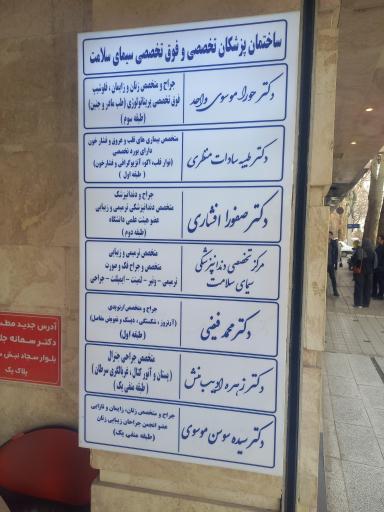 ساختمان پزشکان تخصصی و فوق تخصصی سیمای سلامت
دکتر حورا موسوی واحد
جراح و متخصص زنان و زایمان ، فلوشیپ
فوق تخصصی پریناتولوژی (طب مادر و جنین)
(طبقه سوم)
دکتر طیبه سادات منظری
متخصص بیماری های قلب و عروق و فشار خون
دارای بورد تخصصی
(نوار قلب، اکو، آنژیوگرافی و فشار خون)
(طبقه اول)
دکتر صفورا افشاری
جراح و دندانپزشک
متخصص دندانپزشکی ترمیمی و زیبایی
عضو هیئت علمی دانشگاه
(طبقه دوم)
مرکز تخصصی دندانپزشکی
سیمای سلامت
متخصص ترمیمی و زیبایی
متخصص و جراح فک و صورت
ترمیمی - ونیر - لمینت - ایمپلنت - جراحی
دکتر محمد فیضی
جراح و متخصص ارتوپدی
(آرتروز ، شکستگی ، دیسک و تعویض مفاصل)
(طبقه اول)
دکتر زهره ادیب منش
متخصص جراحی جنرال
(پستان و آنور کتال، غربالگری سرطان)
(طبقه منفی یک)
دکتر سیده سوسن موسوی
جراح و متخصص زنان، زایمان و نازایی
عضو انجمن جراحان زیبایی زنان
(طبقه منفی یک)
آدرس جدید مطب
دکتر سمانه
بلوار سجاد نبش
پلاک یک